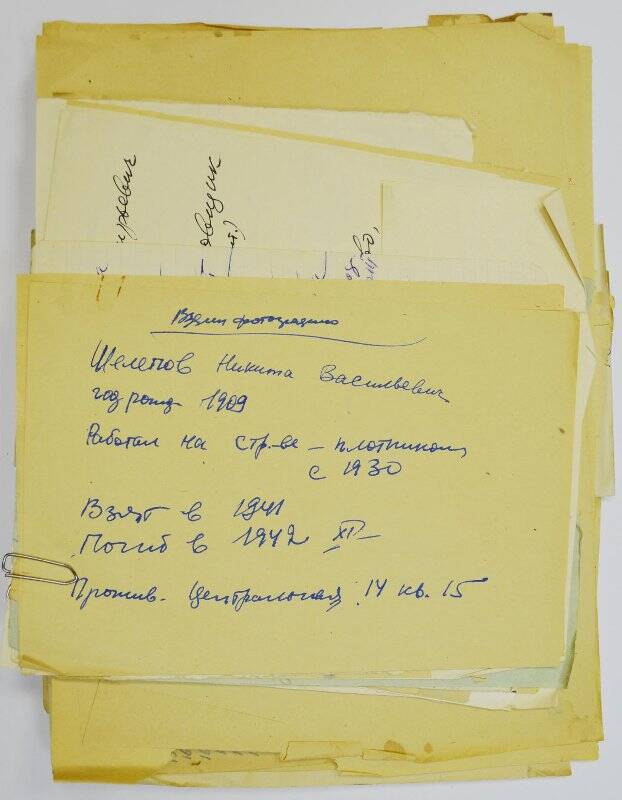 рьевич
овщик
Взяли фотографию
Шелепов Никита Васильевич
год рожд 1909
Работал на стр-ве – плотником
с 1930
Взят в 1941
Погиб в 1942 XII
Прожив. Центральная 14 кв. 15